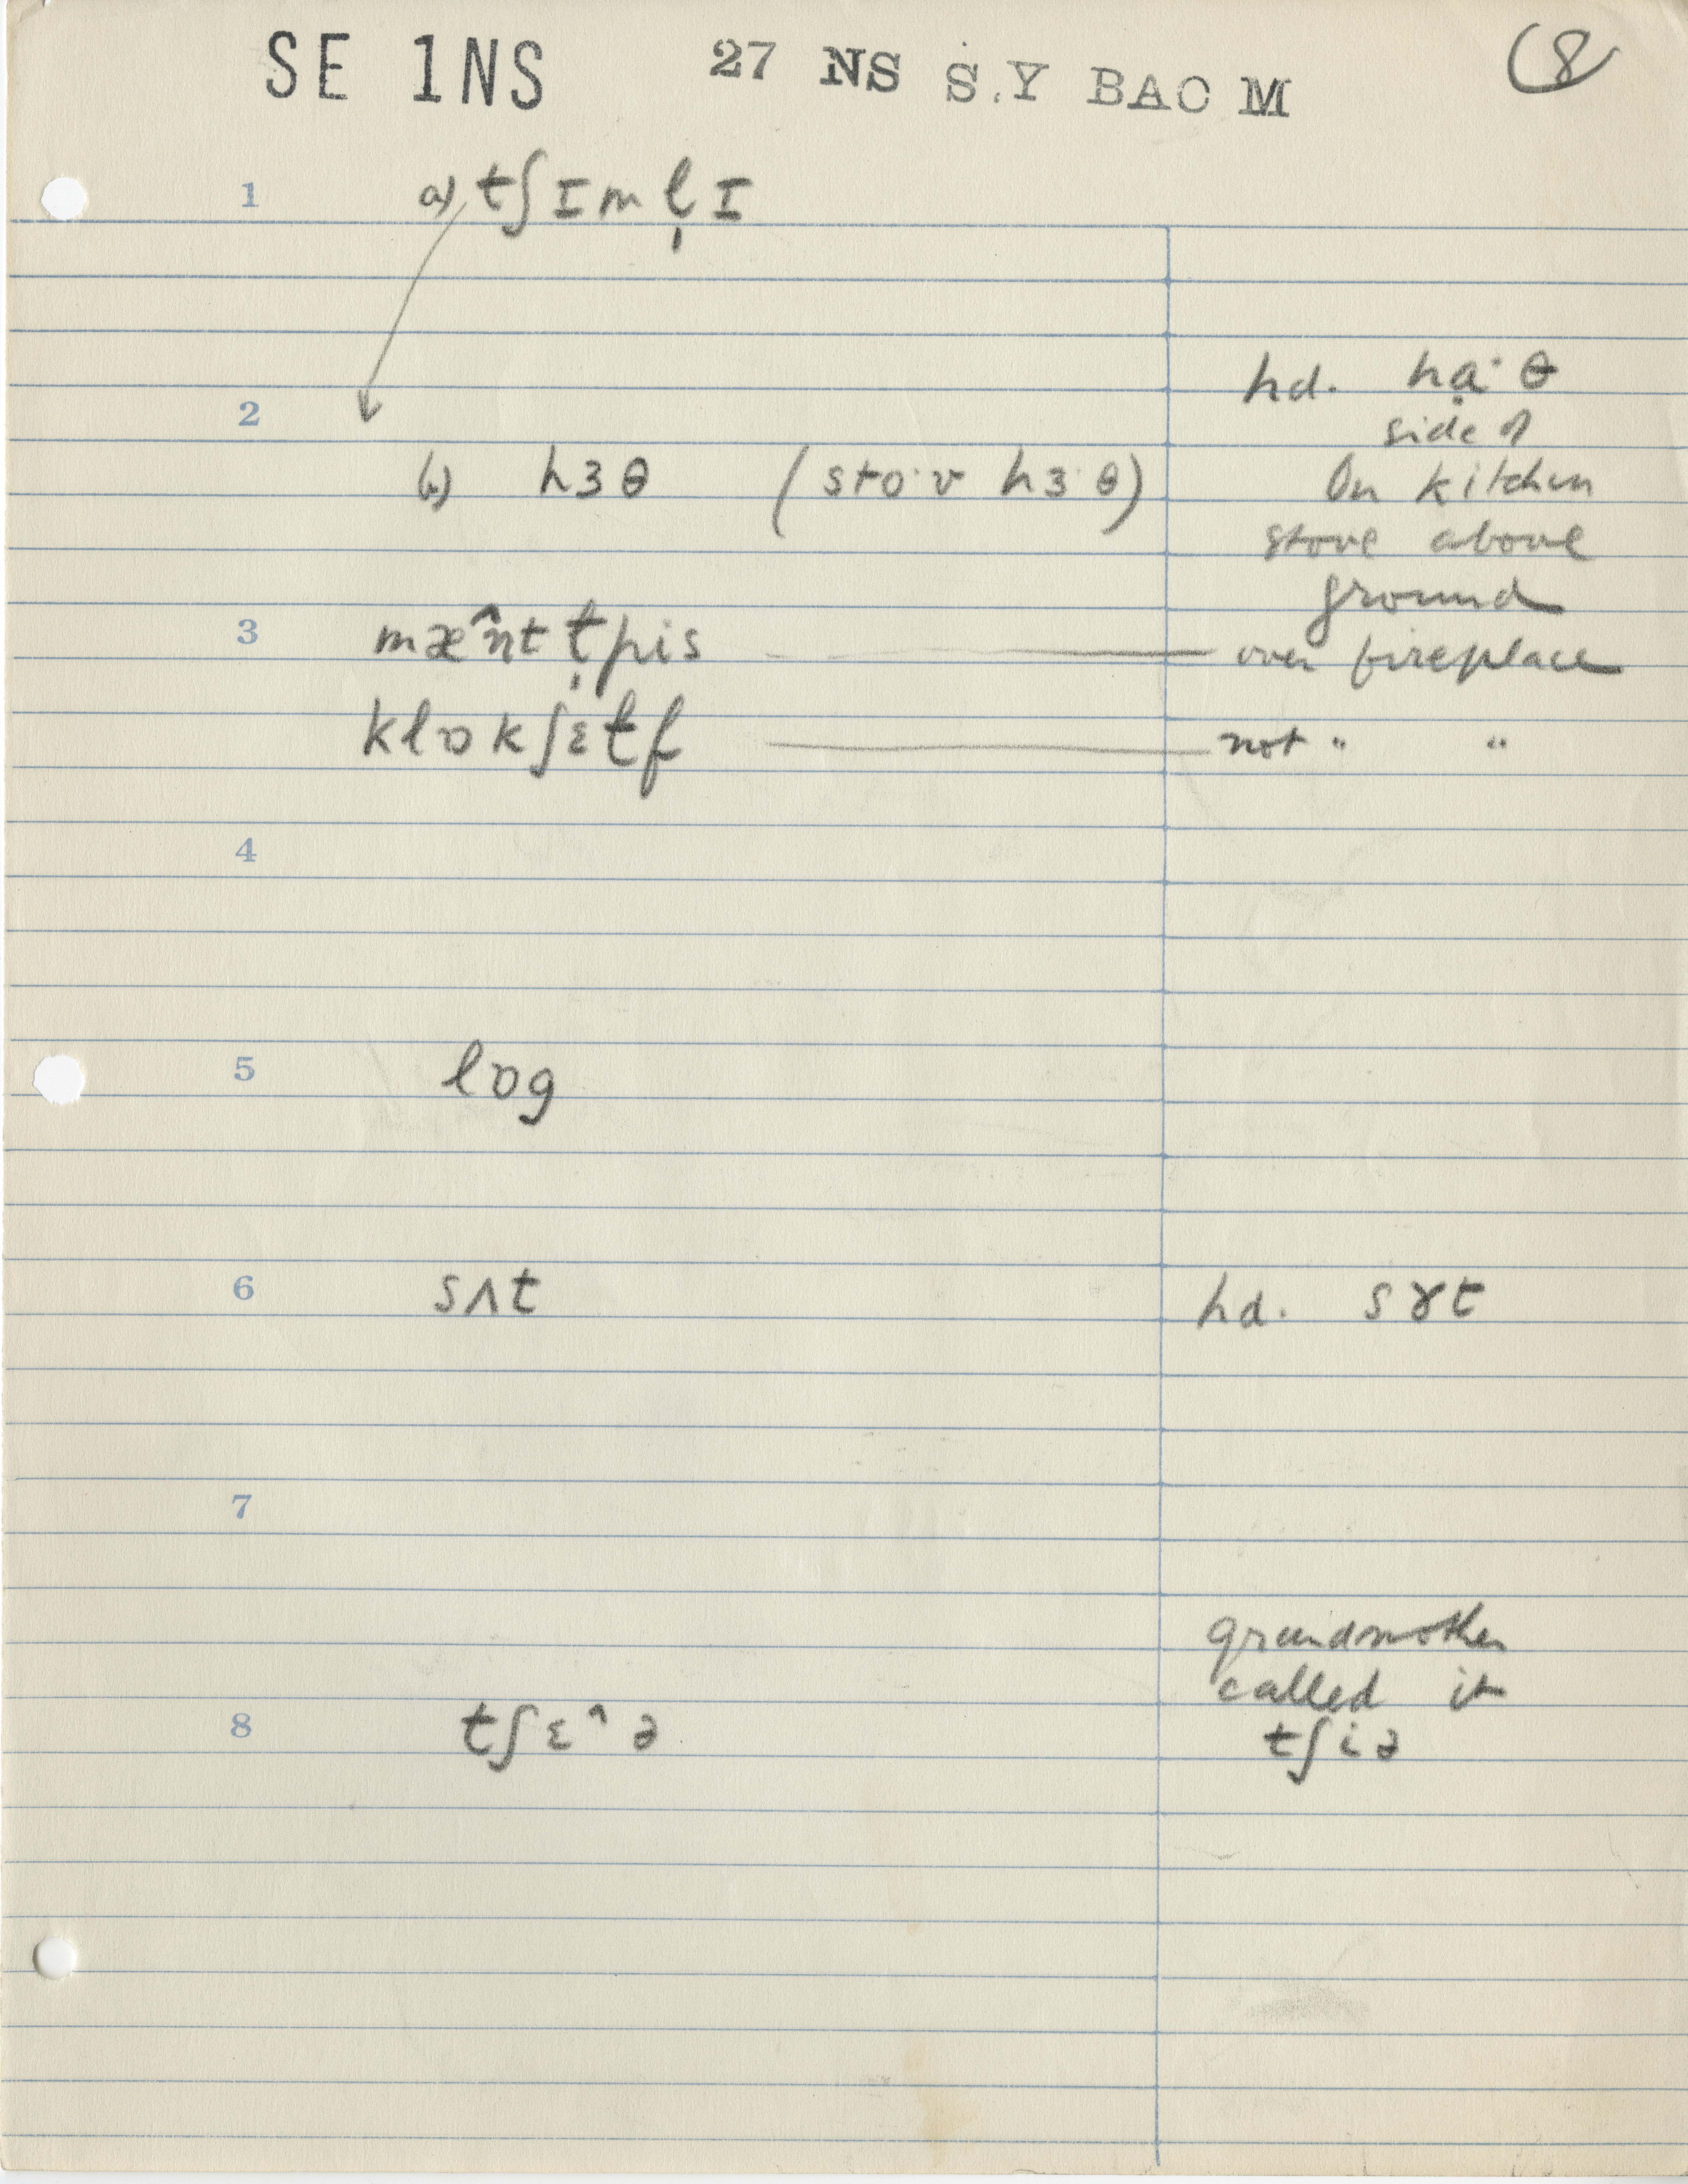 SE 1NS 27 NS S.Y BAO M 8
1 a) tʃɪml̩ɪ
hd. hạ·θ
2 side of
b) hɜθ (sto·v hɜ·θ) On kitchen
stove above
ground
3 mæ̂nt ɫ̩pis over fireplace
klɒkʃɛɫf not " "
4
5 lɒg
6 sʌt hd. sɤt
7
grandmother
called it
8 tʃɛ^ə tʃiə